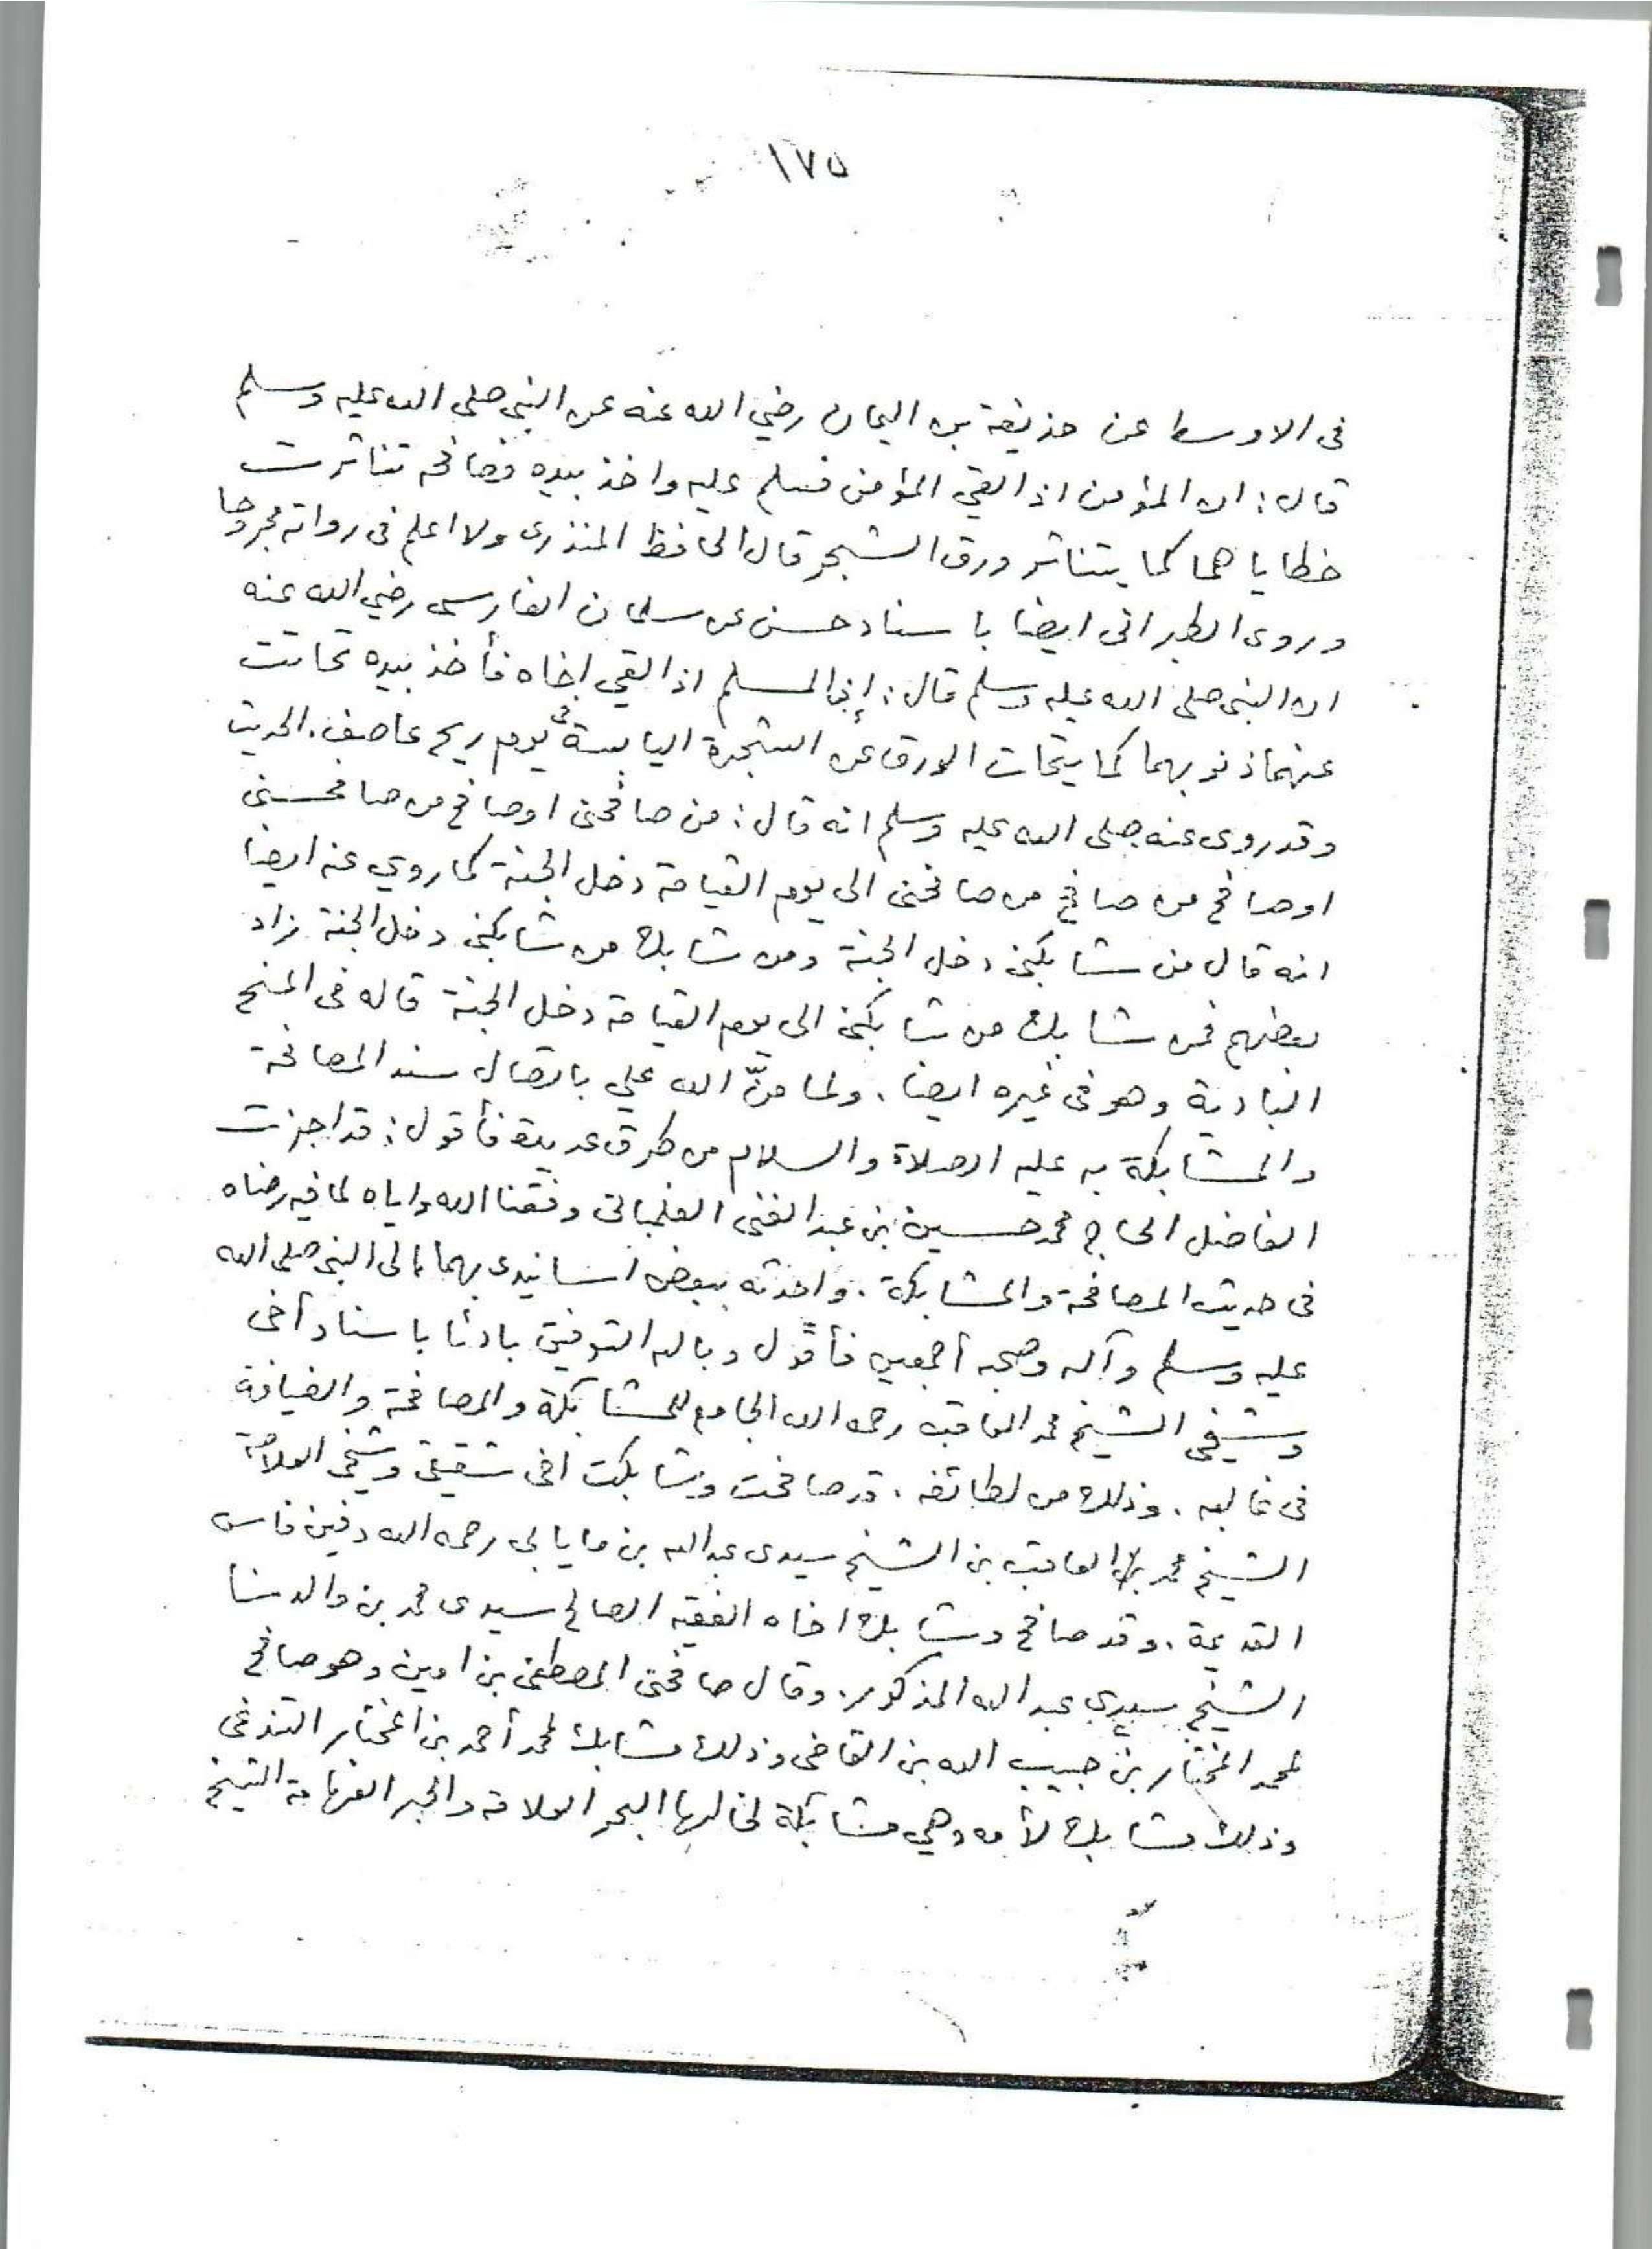 ١٧٥
فى الاوسط عن حذيفة بن اليمان رضي الله عنه عن النبى صلى الله عليه وسلم
قال: ان المؤمن اذا لقي المؤمن فسلم عليه واخذ بيده فصافحه تناثرت
خطاياهما كما يتناثر ورق الشجر قال الحافظ المنذرى ولا اعلم فى رواته مجروحا
وروى الطبرانى ايضا باسناد حسن عن سلمان الفارسى رضي الله عنه
ان النبى صلى الله عليه وسلم قال: إن المسلم اذا لقي اخاه فأخذ بيده تحاتت
عنهما ذنوبهما كما يتحات الورق عن الشجرة اليابسة فى يوم ريح عاصف. الحديث
وقد روى عنه صلى الله عليه وسلم انه قال: من صافحنى اوصافح من صافحنى
اوصافح من صافح من صافحنى الى يوم القيامة دخل الجنة كما روي عنه ايضا
انه قال من شابكنى دخل الجنة ومن شابك من شابكنى دخل الجنة زاد
بعضهم فمن شابك من شابكنى الى يوم القيامة دخل الجنة قاله فى المنح
البادية وهو فى غيره ايضا. ولما منّ الله علي باتصال سند المصافحة
والمشابكة به عليه الصلاة والسلام من طرق عديدة فأقول: قد اجزت
الفاضل الحاج محمد حسين بن عبد الغنى وفقنا الله واياه لما فيه رضاه
فى حديث المصافحة والمشابكة. وافدته ببعض اسانيدى بهما الى النبى صلى الله
عليه وسلم وآله وصحبه أجمعين فأقول وبالله التوفيق بادئا باسناد أخى
وشيخى الشيخ محمد العاقب رحمه الله الجامع للمشابكة والمصافحة والضيافة
فى غالبه. وذلك من لطائفه. قد صافحت وشابكت اخى شقيقى وشيخى العلامة
الشيخ محمد العاقب بن الشيخ سيدى عبدالله بن مايابى رحمه الله دفين فاس
القديمة. وقد صافح وشابك اخاه الفقيه الصالح سيدى محمد بن والدنا
الشيخ سيدي عبد الله المذكور. وقال صافحنى المصطفى بن امين وهو صافح
لمحمد المختار بن حبيب الله بن القاضى وذلك مشابك لمحمد أحمد بن المختار التندغى
وذلك مشابك لأمه وهي مشابكة لخالها البحر العلامة والحبر الفهامة الشيخ